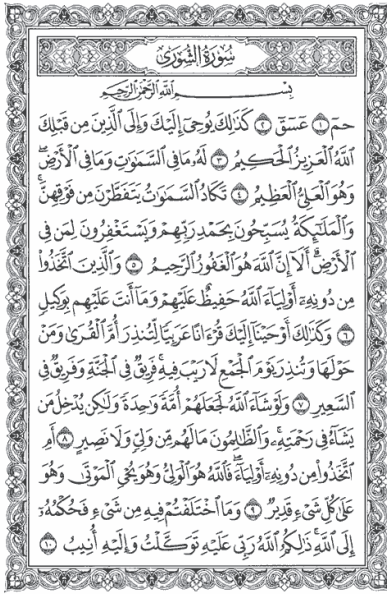 سُورَةُ الشُّورَىٰ
بِسْمِ اللَّهِ الرَّحْمَٰنِ الرَّحِيمِ
حمٓ ١ عٓسٓقٓ ٢ كَذَٰلِكَ يُوحِىٓ إِلَيْكَ وَإِلَى ٱلَّذِينَ مِن قَبْلِكَ
ٱللَّهُ ٱلْعَزِيزُ ٱلْحَكِيمُ ٣ لَهُۥ مَا فِى ٱلسَّمَٰوَٰتِ وَمَا فِى ٱلْأَرْضِۖ
وَهُوَ ٱلْعَلِىُّ ٱلْعَظِيمُ ٤ تَكَادُ ٱلسَّمَٰوَٰتُ يَتَفَطَّرْنَ مِن فَوْقِهِنَّۚ
وَٱلْمَلَٰٓئِكَةُ يُسَبِّحُونَ بِحَمْدِ رَبِّهِمْ وَيَسْتَغْفِرُونَ لِمَن فِى
ٱلْأَرْضِۗ أَلَآ إِنَّ ٱللَّهَ هُوَ ٱلْغَفُورُ ٱلرَّحِيمُ ٥ وَٱلَّذِينَ ٱتَّخَذُوا۟
مِن دُونِهِۦٓ أَوْلِيَآءَ ٱللَّهُ حَفِيظٌ عَلَيْهِمْ وَمَآ أَنتَ عَلَيْهِم بِوَكِيلٍ
٦ وَكَذَٰلِكَ أَوْحَيْنَآ إِلَيْكَ قُرْءَانًا عَرَبِيًّا لِّتُنذِرَ أُمَّ ٱلْقُرَىٰ وَمَنْ
حَوْلَهَا وَتُنذِرَ يَوْمَ ٱلْجَمْعِ لَا رَيْبَ فِيهِۚ فَرِيقٌ فِى ٱلْجَنَّةِ وَفَرِيقٌ فِى
ٱلسَّعِيرِ ٧ وَلَوْ شَآءَ ٱللَّهُ لَجَعَلَهُمْ أُمَّةً وَٰحِدَةً وَلَٰكِن يُدْخِلُ مَن
يَشَآءُ فِى رَحْمَتِهِۦۚ وَٱلظَّٰلِمُونَ مَا لَهُم مِّن وَلِىٍّ وَلَا نَصِيرٍ ٨ أَمِ
ٱتَّخَذُوا۟ مِن دُونِهِۦٓ أَوْلِيَآءَۖ فَٱللَّهُ هُوَ ٱلْوَلِىُّ وَهُوَ يُحْىِ ٱلْمَوْتَىٰ وَهُوَ
عَلَىٰ كُلِّ شَىْءٍ قَدِيرٌ ٩ وَمَا ٱخْتَلَفْتُمْ فِيهِ مِن شَىْءٍ فَحُكْمُهُۥٓ
إِلَى ٱللَّهِۚ ذَٰلِكُمُ ٱللَّهُ رَبِّى عَلَيْهِ تَوَكَّلْتُ وَإِلَيْهِ أُنِيبُ ١٠